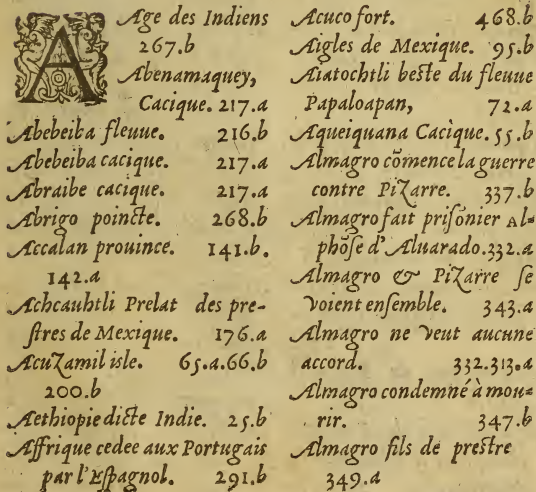 Age des Indiens
267.b
Abenamaquey,
Cacique. 217.a
Abebeiba fleuue. 216.b
Abebeiba cacique. 217.a
Abraibe cacique. 217.a
Abrigo poincte. 268.b
Accalan prouince. 141.b.
142.a
Achcauhtli Prelat des pre-
stres de Mexique. 176.a
AcuZamil isle. 65.a.66.b
200.b
Aethiopie dicte Indie. 25.b
Affrique cedee aux Portugais
par l'Espagnol. 291.b
Acuco fort. 468.b
Aigles de Mexique. 95.b
Aiatochtli beste du fleuue
Papaloapan, 72.a
Aqueiquana Cacique. 55.b
Almagro cõmence la guerre
contre PiZarre. 337.b
Almagro fait prisõnier Al=
phõse d'Aluarado. 332.a
Almagro & PiZarre se
voient ensemble. 343.a
Almagro ne veut aucune
accord. 332.313.a
Almagro condemné à mou=
rir. 347.b
Almagro fils de prestre
349.a